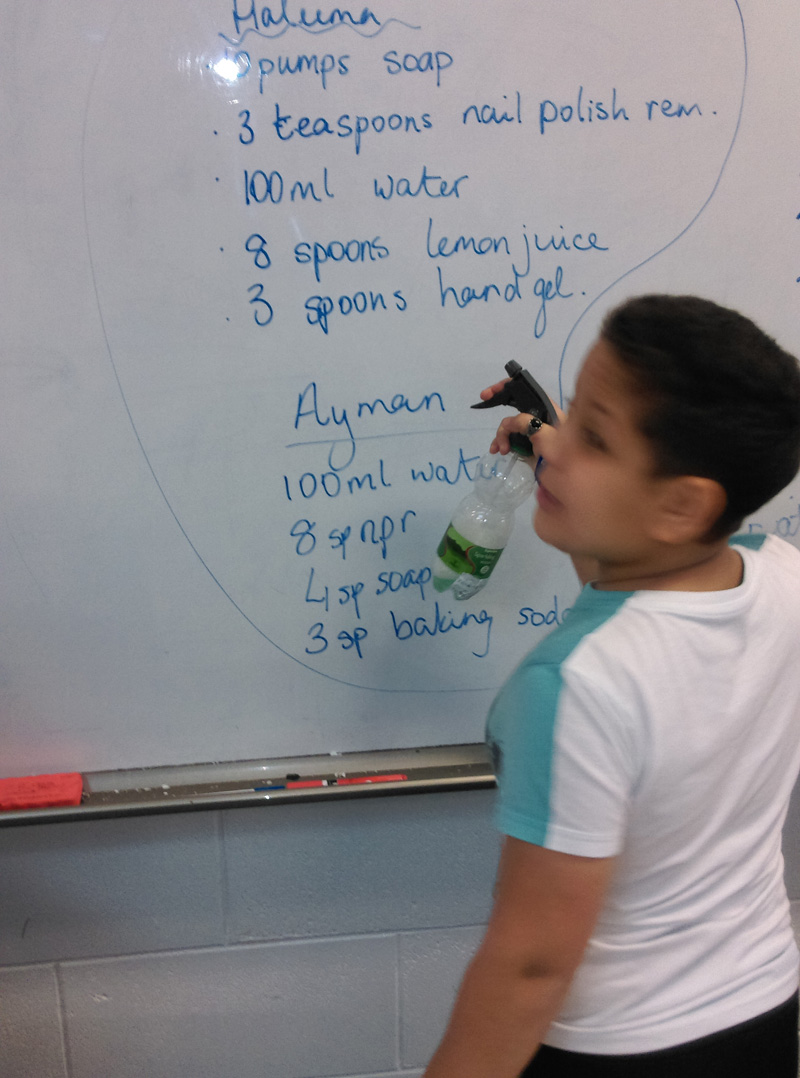 Haluma
pumps soap
· 3 teaspoons nail polish rem.
· 100ml water
· 8 spoons lemon juice
. 3 spoons hand gel.
Ayman
100ml water
8 sp npr
4 sp soap
3 sp baking soda